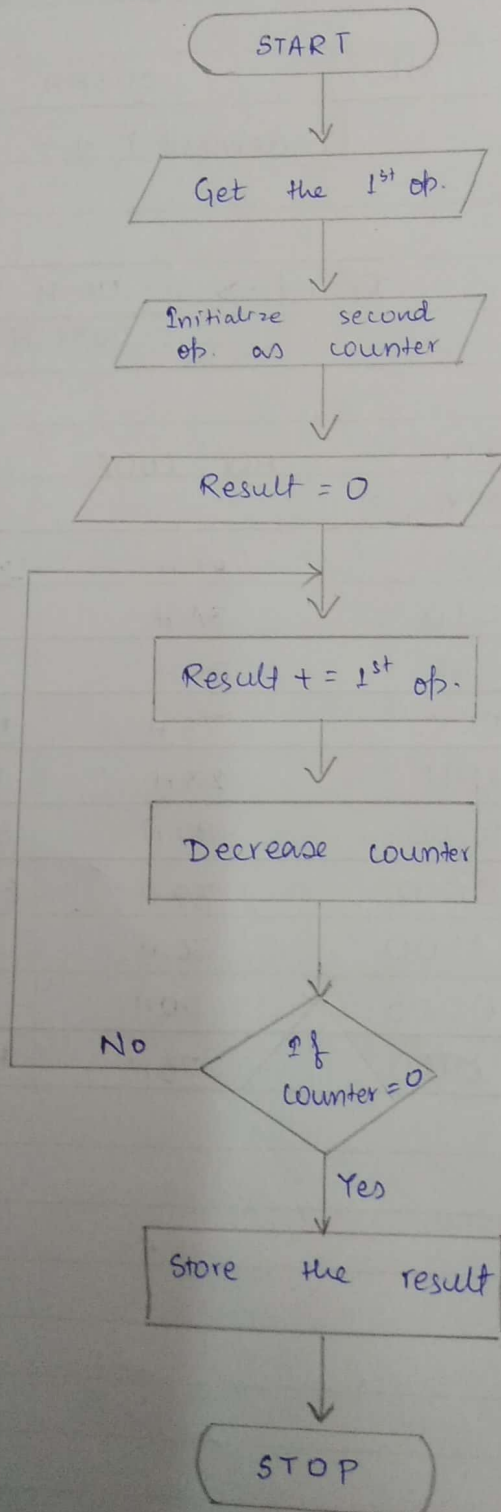 START
Get the 1st op.
Initialize second
op. as counter
Result = 0
Result += 1st op.
Decrease counter
No
If
counter=0
Yes
Store the result
STOP